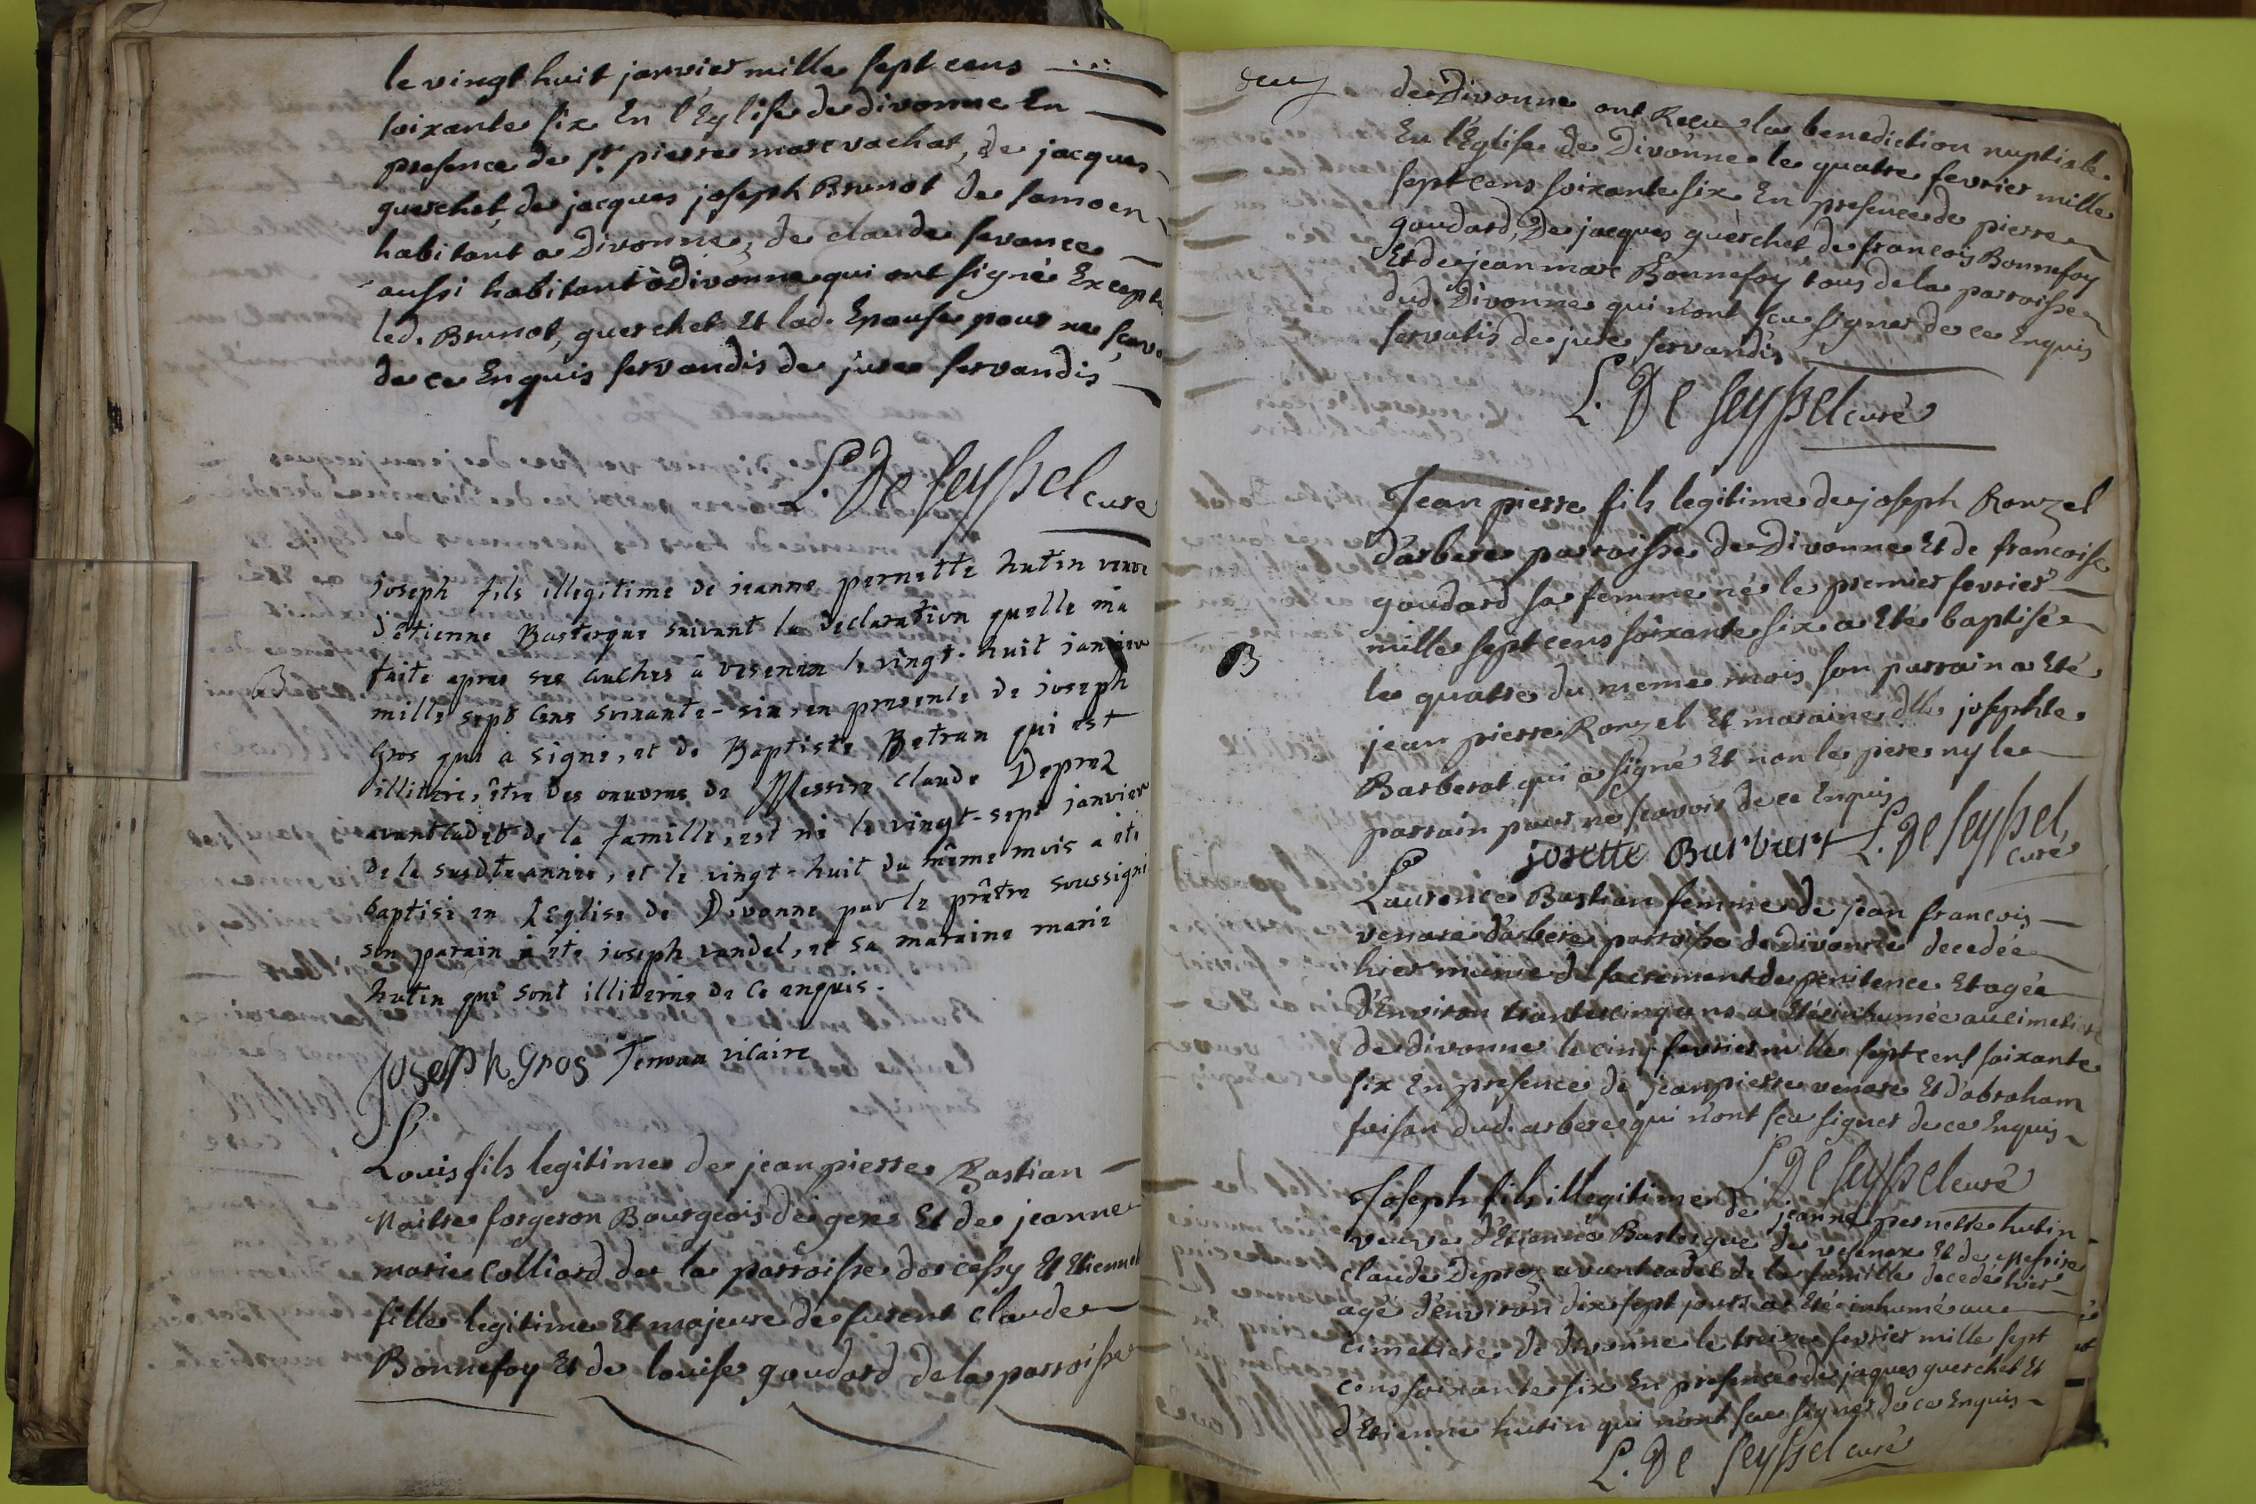 le vingt huit janvier mille sept cens
soixante six En l'Eglise de divonne En
presence de Sr. pierre marc vachat, de jacques
querchet, de jacques joseph Brunot de samoen
habitant a Divonne, de claude servance
aussi habitant a Divonne qui ont signé Excepté
led. Brunot, querchet Et lad. Epouse pour ne scavo
de ce Enquis servandis de jure servandis
L. De Seyssel curé
joseph fils illegitime de jeanne pernette hutin veuve
d'étienne Basterque suivant la declaration qu'elle m'a
faite apres ses couches à vesenex le vingt-huit janvier
mille sept cens soixante-six, en presence de joseph
Gros qui a signé, et de Baptiste Betran qui est
illitéré, être des oeuvres de Messire Claude Deprez
avant cadet de la famille, est né le vingt-sept janvier
de la susdte année, et le vingt-huit du même mois a été
baptisé en l'Eglise de Divonne par le prêtre soussigné
son parain a été joseph vandel, et sa maraine marie
hutin qui sont illiterés de ce enquis.
joseph gros vicaire
Louis fils legitime de jean pierre Bastian
Maitre forgeron Bourgeois de gex Et de jeanne
marie Colliard de la parroisse de cessy Et Etiennett
fille legitime Et majeure de furent claude
Bonnefoy Et de louise goudard de la parroisse
de Divonne ont Reçu la benediction nuptiale
En l'Eglise de Divonne le quatre fevrier mille
sept cens soixante six En presence de pierre
goudard, De jacques querchet de françois Bonnefoy
Et de jean marc Bonnefoy tous de la parroisse
dud. Divonne qui n'ont sçu signer de ce Enquis
servatis de jure servandis
L. De Seyssel curé
Jean pierre fils legitime de joseph Ronzel
d'arbere parroisse de Divonne Et de francoise
goudard sa femme né le premier fevrier
mille sept cens soixante six a Eté baptisé
B
le quatre du meme mois son parrain a Eté
jean pierre Ronzel Et maraine dlle josephte
Barberat qui a signé Et non le pere ny le
parrain pour ne scavoir de ce Enquis
josette Burburt L. De Seyssel
curé
Laurence Bastian femme de jean francois
venare d'arbere parroisse de divonne decedée
hier munie du sacrement de penitence Et agée
d'Environ trante cinq ans a Eté inhumée au cimetiere
de divonne le cinq fevrier mille sept cens soixante
six En presence de jean pierre venare Et d'abraham
foison dud. arbere qui n'ont sçu signer de ce Enquis
L. De Seyssel curé
Joseph fils illegitime de jeanne pernette hutin
veuve d'Etienne Basterque de vesenex Et de Messire
claude Deprez avant cadet de la famille decedé hier
agé d'environ dix sept jours a Eté inhumé au
cimetiere de divonne le treize fevrier mille sept
cens soixante six En presence de jaques querchet Et
d'Etienne hutin qui n'ont sçu signer de ce Enquis
L. De Seyssel curé